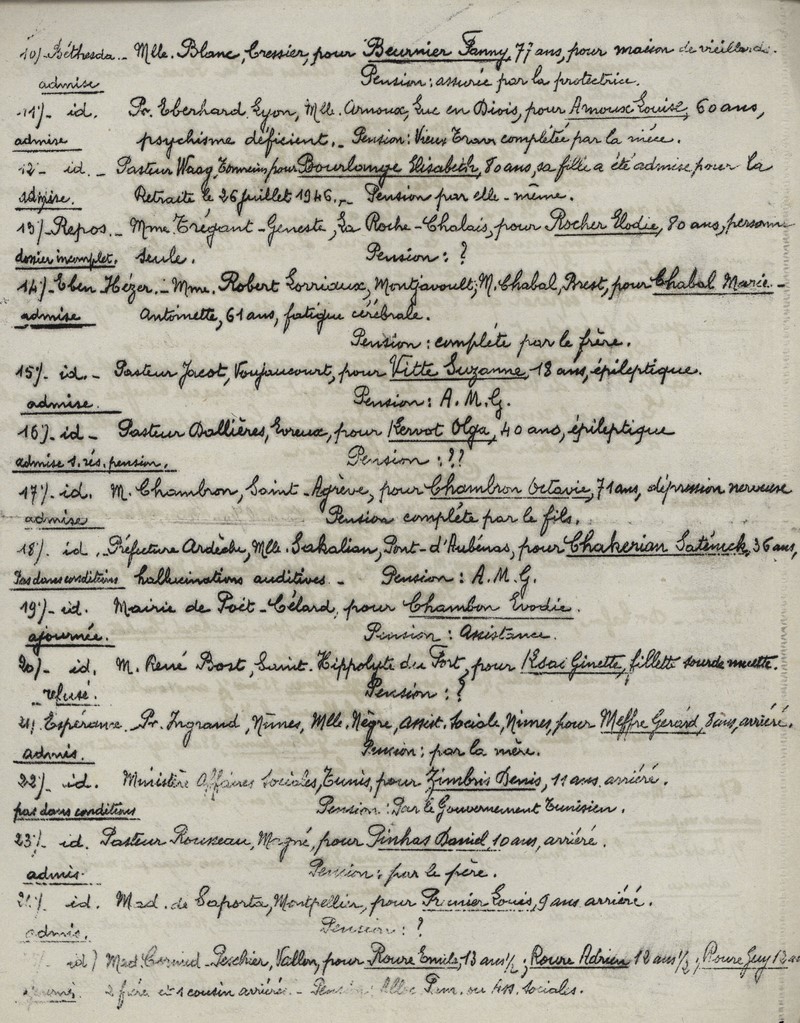 10/- Béthesda.- Mlle. Blanc, Cressier, pour Beurnier Fanny, 77 ans, pour maison de vieillards.
admise Pension: assurée par la protectrice.
11/- id. Pr. Eberhard, Lyon, Mlle. Arnoux, Luc en Diois, pour Arnoux Louise, 60 ans,
admise psychisme déficient.- Pension: Vieux Trav complétée par la nièce.
12- id.- Pasteur Waag, Tonneins, pour Bourlange Elisabeth, 80 ans, sa fille a été admise pour la
admise. Retraite le 26 juillet 1946.- Pension par elle-même.
13/- Repos.- Mme Trégant-Geneste, La Roche-Chalais, pour Rocher Elodie, 80 ans, personne
dossier incomplet. seule. Pension: ?
14/- Eben Hézer.- Mme. Robert Lorriaux, Montjavoult, M. Chabal, Brest, pour Chabal Marie-
admise Antoinette, 61 ans, fatigue cérébrale.
Pension: complétée par le frère.
15/- id.- Pasteur Jacot, Voujaucourt, pour Vitte Suzanne, 18 ans, épileptique.
admise. Pension: A.M.G.
16/- id- Pasteur Dallières, Evreux, pour Kervot Olga, 40 ans, épileptique
admise s. rés. pension. Pension: ??
17/- id. M. Chambron, Saint-Agrève, pour Chambron Octavie, 71 ans, dépression nerveuse
admise Pension complétée par le fils.
18/- id. Préfecture Ardèche, Mlle. Sakalian, Pont-d'Aubenas, pour Chakerian Saténick, 36 ans,
Pas dans conditions hallucinations auditives.- Pension: A.M.G.
19/- id. Mairie de Poët-Célard, pour Chambon Evodie.
ajournée. Pension: Assistance.
20/- id. M. René Bost, Saint-Hippolyte du Fort, pour Ksas Ginette, fillette sourde muette.
refusé. Pension: ?
21/ Espérance. Pr. Ingrand, Nîmes, Mlle. Nègre, assist. sociale, Nîmes, pour Meffre Gérard, 8 ans, arriéré.
admis. Pension: par la mère.
22/- id. Ministère Affaires Sociales, Tunis, pour Zimbris Denis, 11 ans. arriéré.
pas dans conditions Pension: Par le Gouvernement Tunisien.
23/- id. Pasteur Rousseau, Magné, pour Pinhas Daniel, 10 ans, arriéré.
admis. Pension: par le père.
id. Mad. de Saporta, Montpellier, pour Prunier Louis, 9 ans arriéré.
admis. Pension: ?
id) Mad Peschier, Vallon, pour Roure Emile, 13 ans ½; Roure Adrien 12 ans ½; Roure Guy 12 an
2 frères et 1 cousin arriérés.- Pension: Alloc Fam. ou Ass. sociales.